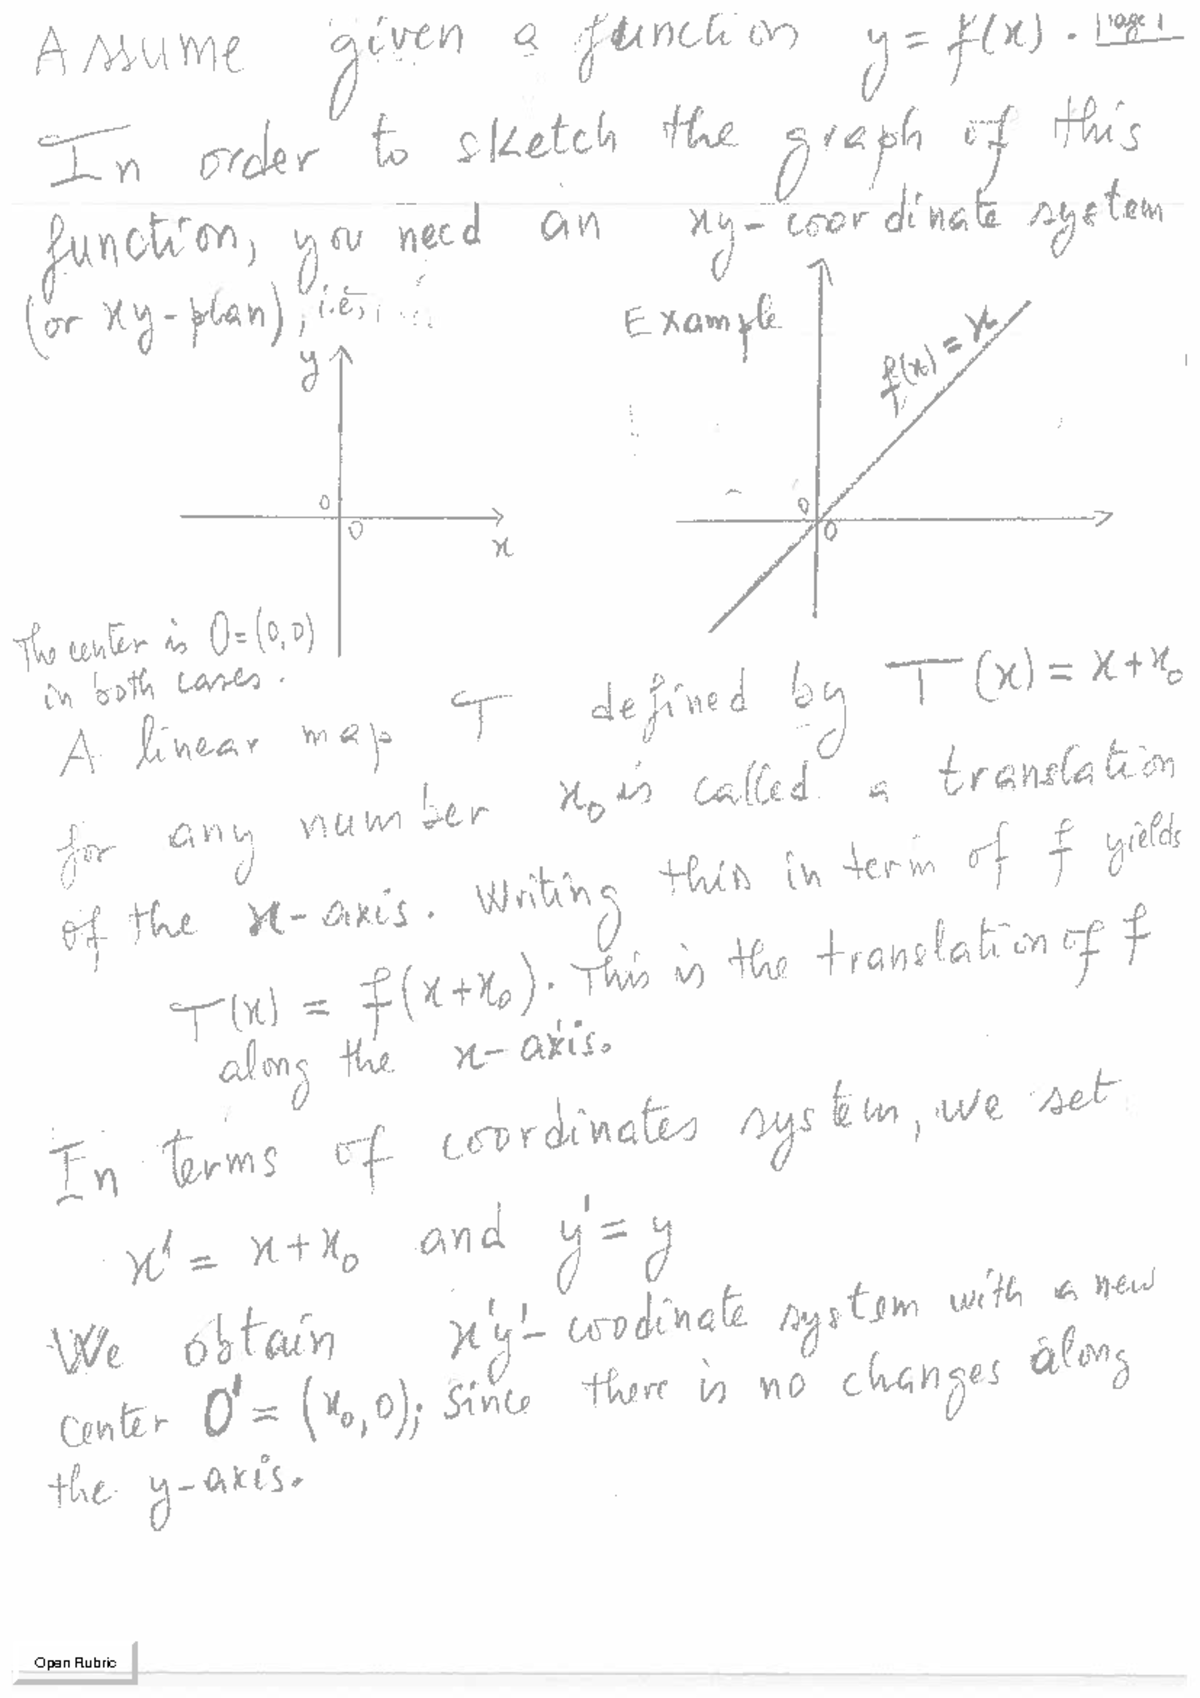 Assume given a function y = f(x). Page 1
In order to sketch the graph of this
function, you need an xy-coordinate system
(or xy-plan), i.e,
Example
f(x) = x
y
0
0
x
0
0
The center is O=(0,0)
in both cases.
A linear map T defined by T(x) = x+x₀
for any number x₀ is called a translation
of the x-axis. Writing this in term of f yields
T(x) = f(x+x₀). This is the translation of f
along the x-axis.
In terms of coordinates system, we set
x' = x+x₀ and y' = y
We obtain x'y'-coodinate system with a new
center O' = (x₀,0); Since there is no changes along
the y-axis.
Open Rubric